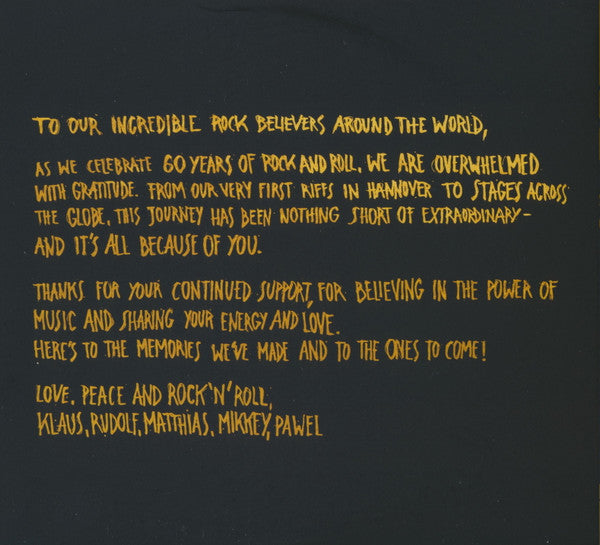 TO OUR INCREDIBLE ROCK BELIEVERS AROUND THE WORLD,
AS WE CELEBRATE 60 YEARS OF ROCK AND ROLL, WE ARE OVERWHELMED
WITH GRATITUDE. FROM OUR VERY FIRST RIFFS IN HANNOVER TO STAGES ACROSS
THE GLOBE, THIS JOURNEY HAS BEEN NOTHING SHORT OF EXTRAORDINARY-
AND IT'S ALL BECAUSE OF YOU.
THANKS FOR YOUR CONTINUED SUPPORT, FOR BELIEVING IN THE POWER OF
MUSIC AND SHARING YOUR ENERGY AND LOVE.
HERE'S TO THE MEMORIES WE'VE MADE AND TO THE ONES TO COME!
LOVE, PEACE AND ROCK'N'ROLL,
KLAUS, RUDOLF, MATTHIAS, MIKKEY, PAWEL